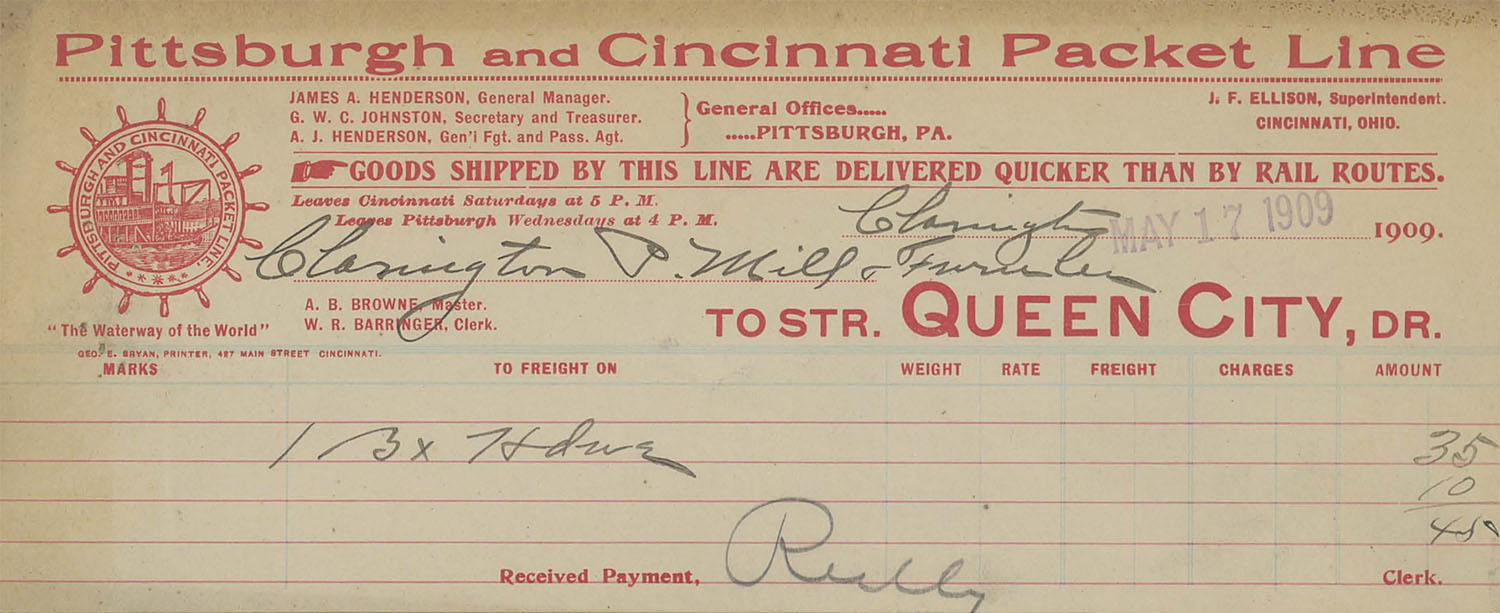 Pittsburgh and Cincinnati Packet Line
JAMES A. HENDERSON, General Manager.
G. W. C. JOHNSTON, Secretary and Treasurer.
A. J. HENDERSON, Gen'l Fgt. and Pass. Agt.
General Offices.....
.....PITTSBURGH, PA.
J. F. ELLISON, Superintendent.
CINCINNATI, OHIO.
PITTSBURGH AND CINCINNATI PACKET LINE.
GOODS SHIPPED BY THIS LINE ARE DELIVERED QUICKER THAN BY RAIL ROUTES.
Leaves Cincinnati Saturdays at 5 P. M.
Leaves Pittsburgh Wednesdays at 4 P. M.
Clarington MAY 17 1909 1909.
Clarington P. Mill &
A. B. BROWNE, Master.
W. R. BARRINGER, Clerk.
TO STR. QUEEN CITY, DR.
"The Waterway of the World"
GEO. E. BRYAN, PRINTER, 427 MAIN STREET CINCINNATI.
MARKS TO FREIGHT ON WEIGHT RATE FREIGHT CHARGES AMOUNT
1 Bx Hdwe 35
10
45
Received Payment, Reilly Clerk.